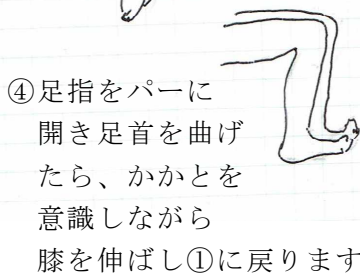 ④足指をパーに
開き足首を曲げ
たら、かかとを
意識しながら
膝を伸ばし①に戻ります